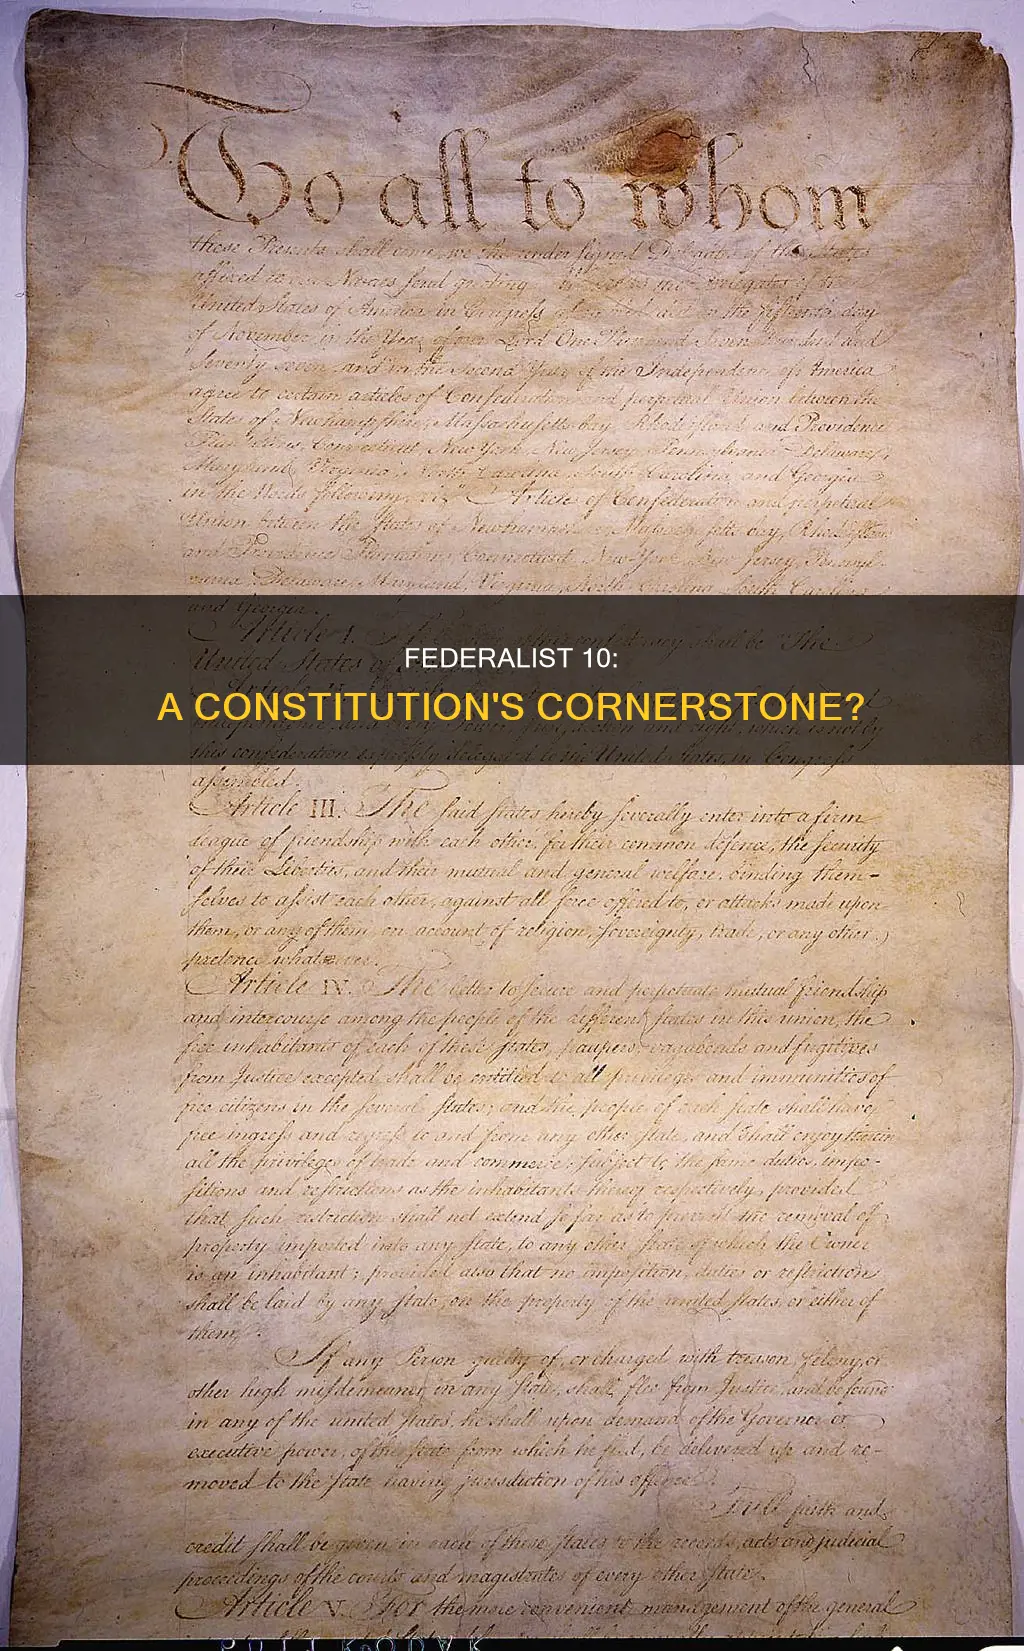 To all to whom
these Presents shall come, we the under signed Delegates of the States
affixed to our Names send greeting. Whereas the Delegates of the
United States of America in Congress assembled did on the fifteenth day
of November in the Year of our Lord One Thousand Seven Hundred and
Seventy seven, and in the Second Year of the Independence of America
agree to certain articles of Confederation and perpetual Union between the
States of Newhampshire, Massachusetts-bay, Rhodeisland and Providence
Plantations, Connecticut, New York, New Jersey, Pennsylvania, Delaware,
Maryland, Virginia, North Carolina, South Carolina, and Georgia
in the Words following, viz. "Articles of Confederation and perpetual
Union between the States of Newhampshire, Massachusetts-bay, Rhodeisland
and Providence Plantations, Connecticut, New-York, New-Jersey, Pennsyl-
vania, Delaware, Maryland, Virginia, North-Carolina, South-Carolina
and Georgia.
Article I. The shall be "The
United States of
FEDERALIST 10:
A CONSTITUTION'S CORNERSTONE?
and right, which is not by
this confederation expressly delegated to the United States, in Congress
assembled.
Article III. The said states hereby severally enter into a firm
league of friendship with each other, for their common defence, the security
of their Liberties, and their mutual and general welfare, binding them-
selves to assist each other, against all force offered to, or attacks made upon
them, or any of them, on account of religion, sovereignty, trade, or any other
pretence whatever.
Article IV. The better to secure and perpetuate mutual friendship
and intercourse among the people of the different states in this union, the
free inhabitants of each of these states, paupers, vagabonds and fugitives
from Justice excepted, shall be entitled to all privileges and immunities of
free citizens in the several states; and the people of each state shall have
free ingress and regress to and from any other state, and shall enjoy therein
all the privileges of trade and commerce, subject to the same duties, impo-
sitions and restrictions as the inhabitants thereof respectively, provided
that such restriction shall not extend so far as to prevent the removal of
property imported into any state, to any other state of which the Owner
is an inhabitant; provided also that no imposition, duties or restriction
shall be laid by any state, on the property of the united states, or either of
them.
If any Person guilty of, or charged with treason, felony, or
other high misdemeanor in any state, shall flee from Justice, and be found
in any of the united states, he shall upon demand of the Governor or
executive power, of the state from which he fled, be delivered up and re-
moved to the state having jurisdiction of his offence.
Full faith and
credit shall be given in each of these states to the records, acts and judicial
proceedings of the courts and magistrates of every other state.
Article V. For the more convenient management of the general